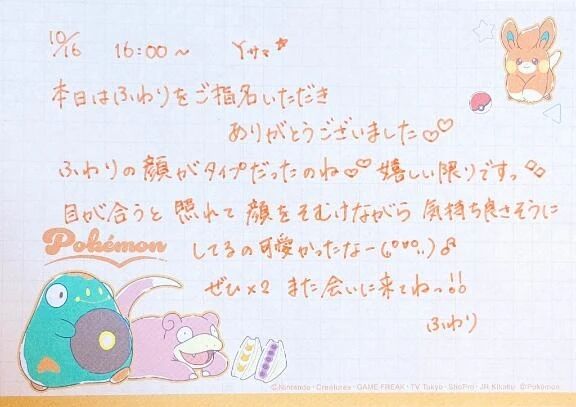 10/16 16:00～ Yサマ☆
本日はふわりをご指名いただき
ありがとうございました♡♡
ふわりの顔がタイプだったのね♡♡ 嬉しい限りですっ◇◇
目が合うと照れて顔をそむけながら気持ち良さそうに
Pokémon
してるの可愛かったなー(⁄⁄•⁄⁄)♂
ぜひ×2 また会いに来てねっ!!
ふわり
©Nintendo・Creatures・GAME FREAK・TV Tokyo・ShoPro・JR Kikaku ©Pokémon